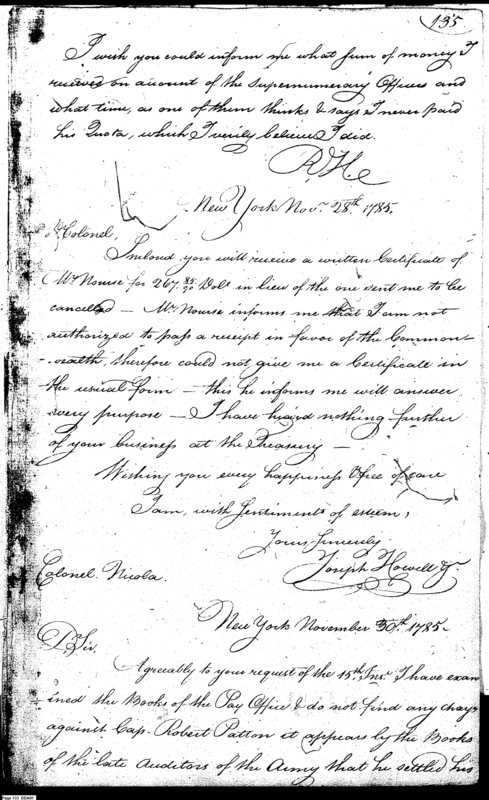 135
I wish you could inform me what sum of money I
received on account of the Supernumerary Officers and
what time, as one of them thinks & says I never paid
his Quota, which I verily believe I did.
R.H.
New York Nov. 28th 1785.
Colonel,
Inclosed you will receive a written Certificate of
Mr. Nourse for 267 Dols in lieu of the one sent me to be
cancelled — Mr. Nourse informs me that I am not
authorized to pass a receipt in favor of the Common-
-wealth, therefore could not give me a Certificate in
the usual form — this he informs me will answer
every purpose — I have heard nothing further
of your business at the Treasury —
Wishing you every happiness & free of care
I am, with Sentiments of esteem,
Yours Sincerely
Joseph Howell Jr.
Colonel Nicola.
New York November 30th 1785.
D. Sir,
Agreeably to your request of the 15th Inst. I have exam
-ined the Books of the Pay Office & do not find any charge
against Cap. Robert Patton it appears by the Books
of the late Auditors of the Army that he settled his
Page 133